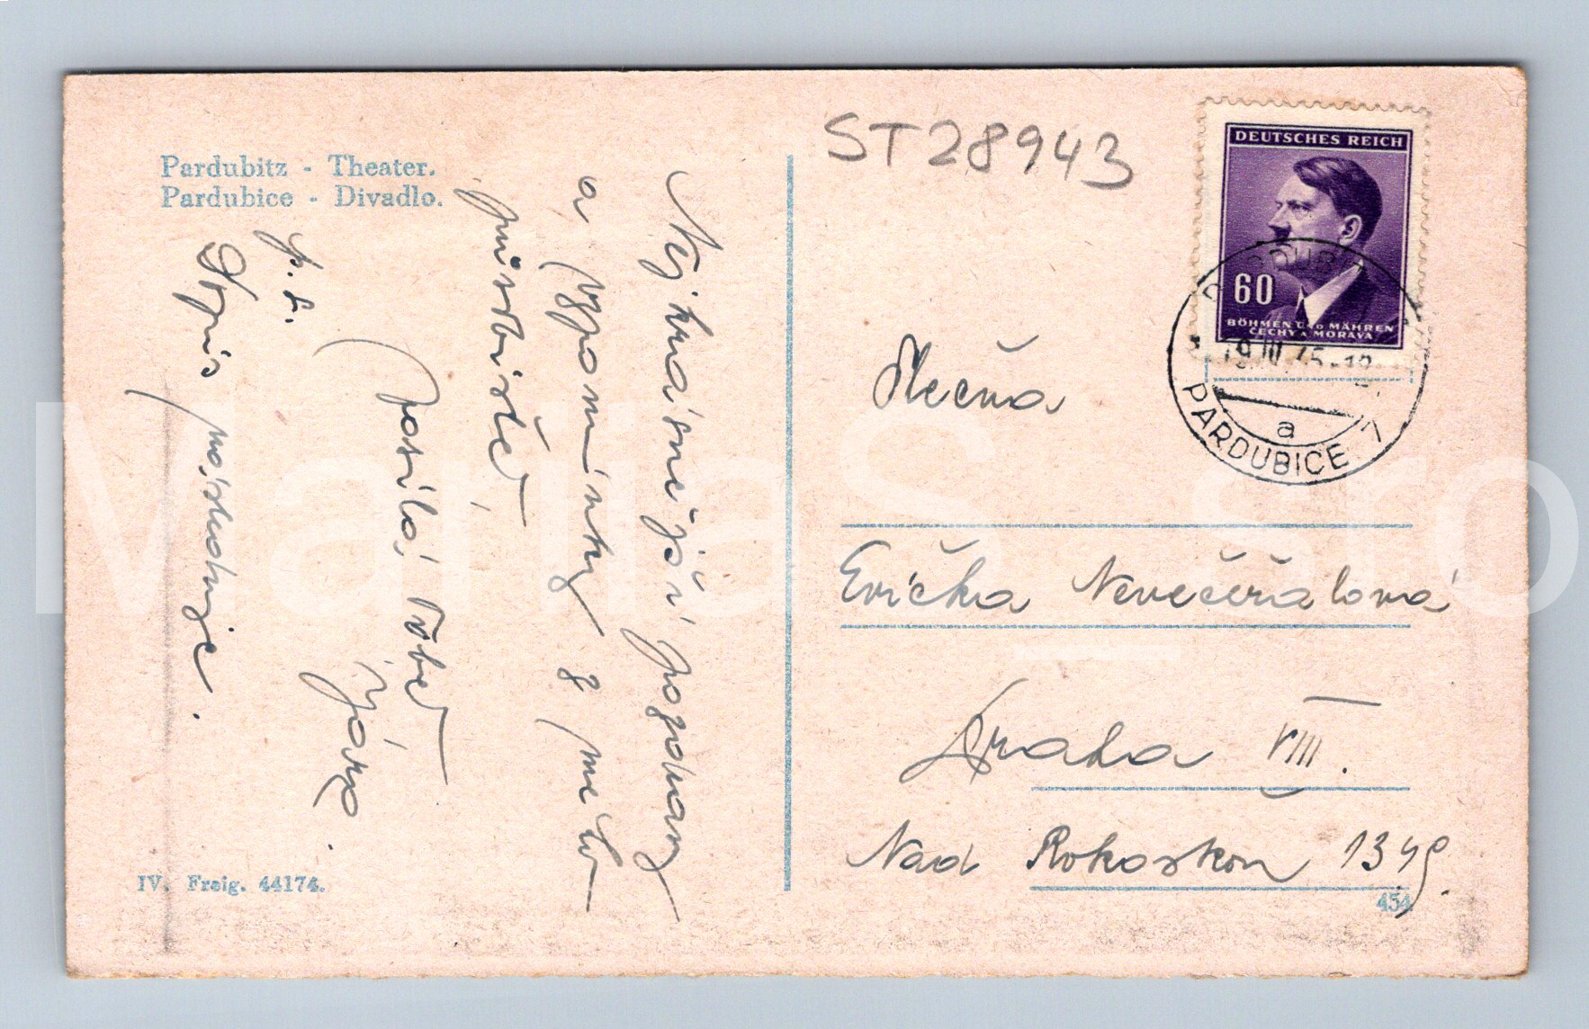 Pardubitz - Theater.
Pardubice - Divadlo.
Nejkrásnější pozdravy
a vzpomínky z me to
působiště,
posílá Tobě
Jára.
p. s.
Dopis následuje.
IV. Freig. 44174.
ST28943
DEUTSCHES REICH
60
BÖHMEN UND MÄHREN
ČECHY A MORAVA
19.III.45-12
a
PARDUBICE 7
Slečna
Evička Nevečeřalová
Praha VIII.
Nad Rokoskou 1349.
454
MariaS_sro